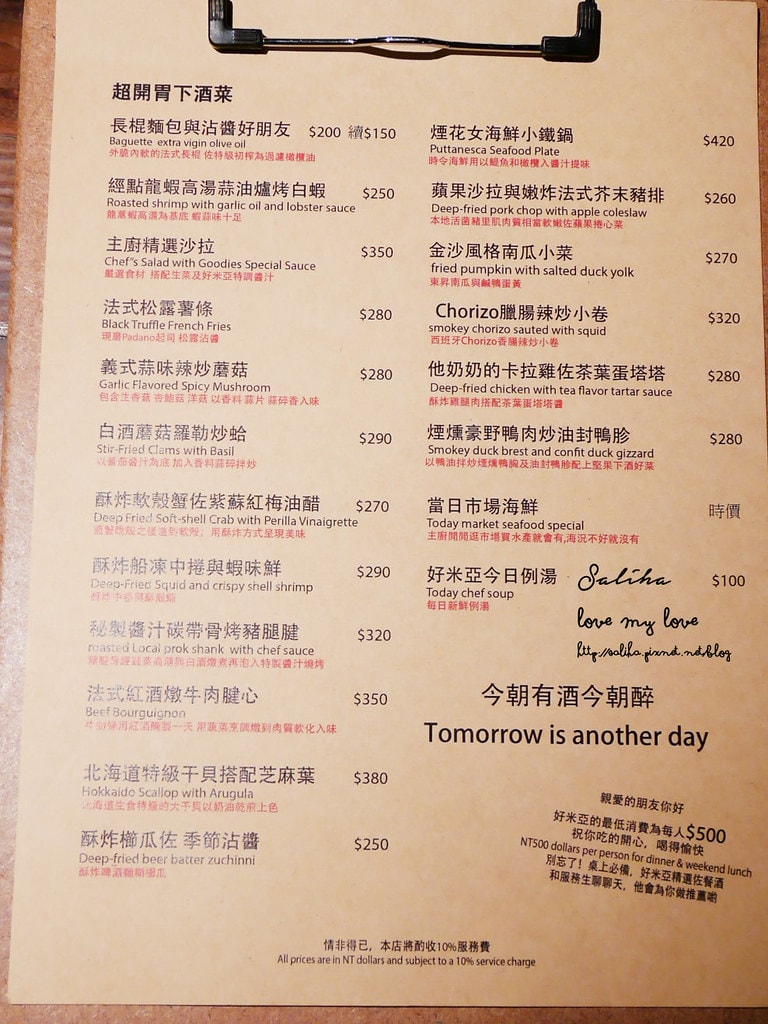 超開胃下酒菜
長棍麵包與沾醬好朋友 $200 續$150
Baguette extra vigin olive oil
外脆內軟的法式長棍 佐特級初榨為過濾橄欖油
經點龍蝦高湯蒜油爐烤白蝦 $250
Roasted shrimp with garlic oil and lobster sauce
龍蝦高湯為基底 蝦蒜味十足
主廚精選沙拉 $350
Chef"s Salad with Goodies Special Sauce
嚴選食材 搭配生菜及好米亞特調醬汁
法式松露薯條 $280
Black Truffle French Fries
現磨Padano起司 松露沾醬
義式蒜味辣炒蘑菇 $280
Garlic Flavored Spicy Mushroom
包含生香菇 杏鮑菇 洋菇 以香料 蒜片 蒜碎香入味
白酒蘑菇羅勒炒蛤 $290
Stir-Fried Clams with Basil
以番茄醬汁為底 加入香料蒜碎拌炒
酥炸軟殼蟹佐紫蘇紅梅油醋 $270
Deep Fried Soft-shell Crab with Perilla Vinaigrette
用酥炸方式呈現美味
酥炸船凍中捲與蝦味鮮 $290
Deep-Fried Squid and crispy shell shrimp
秘製醬汁碳帶骨烤豬腿腱 $320
roasted Local prok shank with chef sauce
法式紅酒燉牛肉腱心 $350
Beef Bourguignon
北海道特級干貝搭配芝麻葉 $380
Hokkaido Scallop with Arugula
北海道生食特級的大干貝以奶油乾煎上色
酥炸櫛瓜佐 季節沾醬 $250
Deep-fried beer batter zuchinni
酥炸啤酒麵糊櫛瓜
煙花女海鮮小鐵鍋 $420
Puttanesca Seafood Plate
時令海鮮用以鯷魚和橄欖入醬汁提味
蘋果沙拉與嫩炸法式芥末豬排 $260
Deep-fried pork chop with apple coleslaw
本地活菌豬里肌肉質相當軟嫩佐蘋果捲心菜
金沙風格南瓜小菜 $270
fried pumpkin with salted duck yolk
東昇南瓜與鹹鴨蛋黃
Chorizo臘腸辣炒小卷 $320
smokey chorizo sauted with squid
西班牙Chorizo香腸辣炒小卷
他奶奶的卡拉雞佐茶葉蛋塔塔 $280
Deep-fried chicken with tea flavor tartar sauce
酥炸雞腿肉搭配茶葉蛋塔塔醬
煙燻豪野鴨肉炒油封鴨胗 $280
Smokey duck brest and confit duck gizzard
以鴨油拌炒煙燻鴨胸及油封鴨胗配上堅果下酒好菜
當日市場海鮮 時價
Today market seafood special
主廚閒閒逛市場買水產就會有,海況不好就沒有
好米亞今日例湯 $100
Today chef soup
每日新鮮例湯
Saliha
love my love
http://saliha.pixnet.net/blog
今朝有酒今朝醉
Tomorrow is another day
親愛的朋友你好
好米亞的最低消費為每人$500
祝你吃的開心，喝得愉快
NT500 dollars per person for dinner & weekend lunch
別忘了！桌上必備，好米亞精選佐餐酒
和服務生聊聊天，他會為你做推薦喲
情非得已，本店將酌收10%服務費
All prices are in NT dollars and subject to a 10% service charge